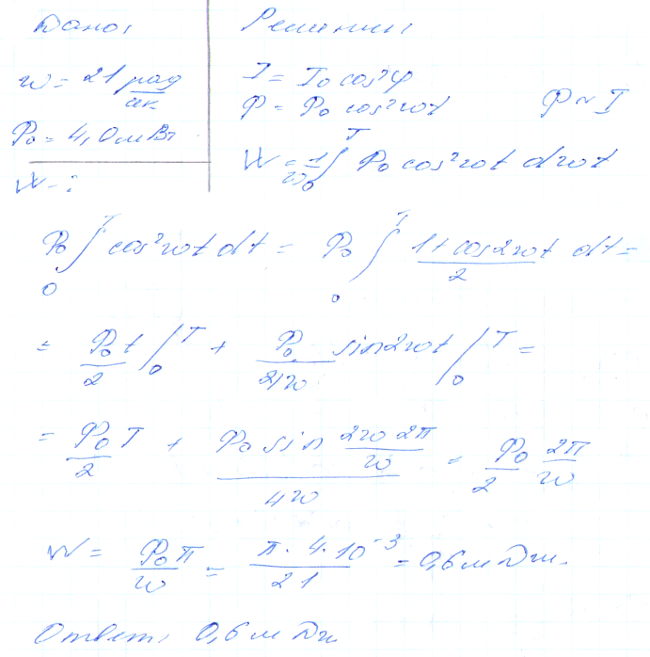 Дано:
ω = 21 рад/сек
P₀ = 4,0 мВт
W - ?
Решение:
I = I₀ cos²φ
Φ = P₀ cos²ωt Φ ~ I
W = 1/ω ∫₀ᵀ P₀ cos²ωt dωt
P₀ ∫₀ᵀ cos²ωt dt = P₀ ∫₀ᵀ (1 + cos2ωt)/2 dt =
= P₀t/2 |₀ᵀ + P₀/2ω sin2ωt |₀ᵀ =
= P₀/2 T + (P₀ sin 2ω2π/ω)/4ω = P₀/2 2π/ω
W = P₀π/ω = π · 4 · 10⁻³/21 = 0,6 мДж.
Ответ: 0,6 мДж